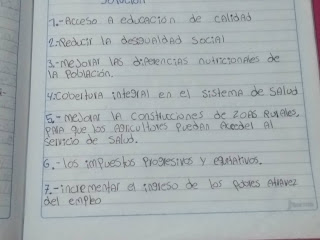 SOLUCION
1.-Acceso A educación de calidad
2.-Reducir la desigualdad social
3.-Mejorar las deficencias nutricionales de
la Población.
4.cobertura integral en el sistema de salud
5.-mejorar la construcciones de zoas Rurales,
para que los agricultores puedan Accedel al
servicio de salud.
6.-los impuestos progresivos y equitativos.
7.-incrementar el ingreso de los pobres atravez
del empleo